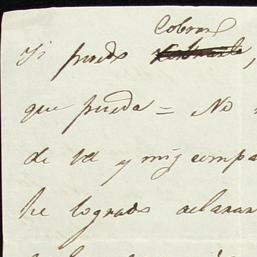 Cobrar
Si puedo
que pueda = No
de Vd y mis compa
he logrado aclarar